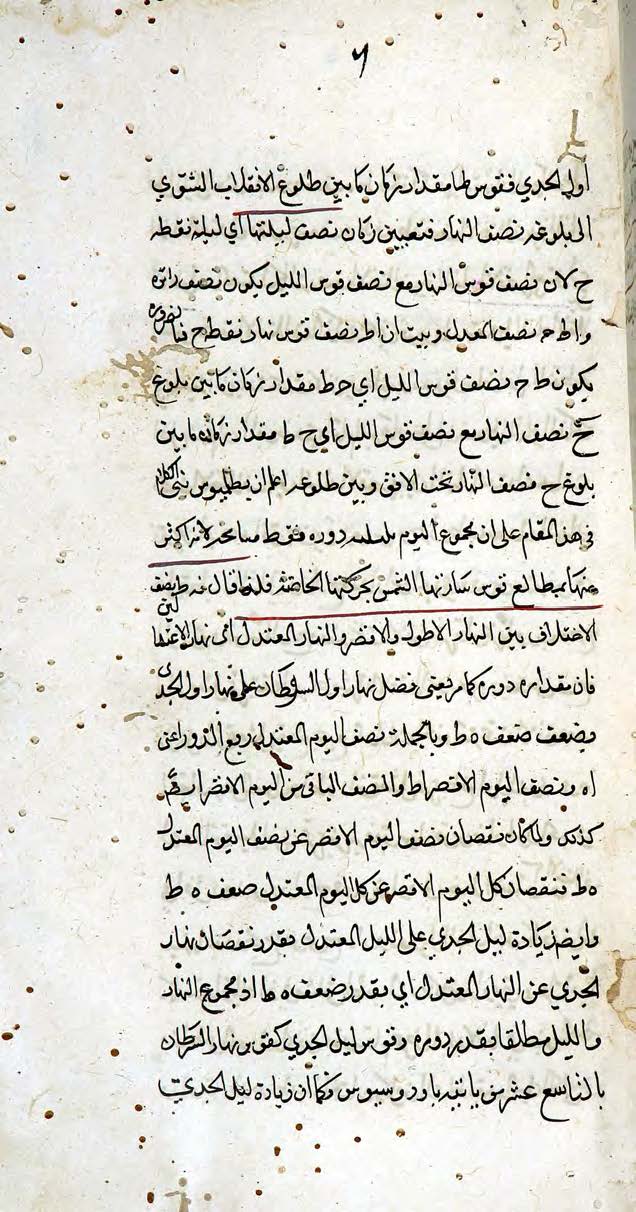 ٦
اول الجدي فقوس طا مقدار زمان ما بين طلوع الانقلاب الشتوي
الى بلوغه نصف النهار فتعيين زمان نصف ليلتها اي ليلة نقطه
ح لان نصف قوس النهار مع نصف قوس الليل يكون نصف دائره
و اط ح نصف المعدل وبيت ان اط نصف قوس نهار نقطه ح فبالضروره
يكون ط ح نصف قوس الليل اي ح ط مقدار زمان ما بين بلوغ
ح نصف النهار مع نصف قوس الليل اي ح ط مقدار زمانه ما بين
بلوغ ح نصف النهار تحت الافق وبين طلوعه اعلم ان بطلميوس بنى الكلام
في هذا المقام على ان مجموع اليوم بليلته دوره فقط لانه اكثر
منها بمطالع قوس سارتها الشمس بحركتها الخاصة فلهذا قال ه ط نصف
الاختلاف بين النهار الاطول والاقصر والنهار المعتدل
فان مقداره دوره كما مر يعني فضل نهار اول السرطان على نهار اول الجدي
وضعف ضعف ه ط وبالجملة نصف اليوم المعتدل ربع الدور اعني
ا ه ونصف اليوم الاقصر اط والنصف الباقي من اليوم الاقصر
كذلك ولما كان نقصان نصف اليوم الاقصر عن نصف اليوم المعتدل
ه ط فنقصان كل اليوم الاقصر عن كل اليوم المعتدل ضعف ه ط
وايضا زيادة ليل الجدي على الليل المعتدل بقدر نقصان نهار
الجدي عن النهار المعتدل اي بقدر ضعف ه ط اذ مجموع النهار
والليل مطلقا بقدر دوره وقوس ليل الجدي كقوس نهار السرطان
بالتاسع عشر من ثانية ثاوذوسيوس فكما ان زيادة ليل الجدي